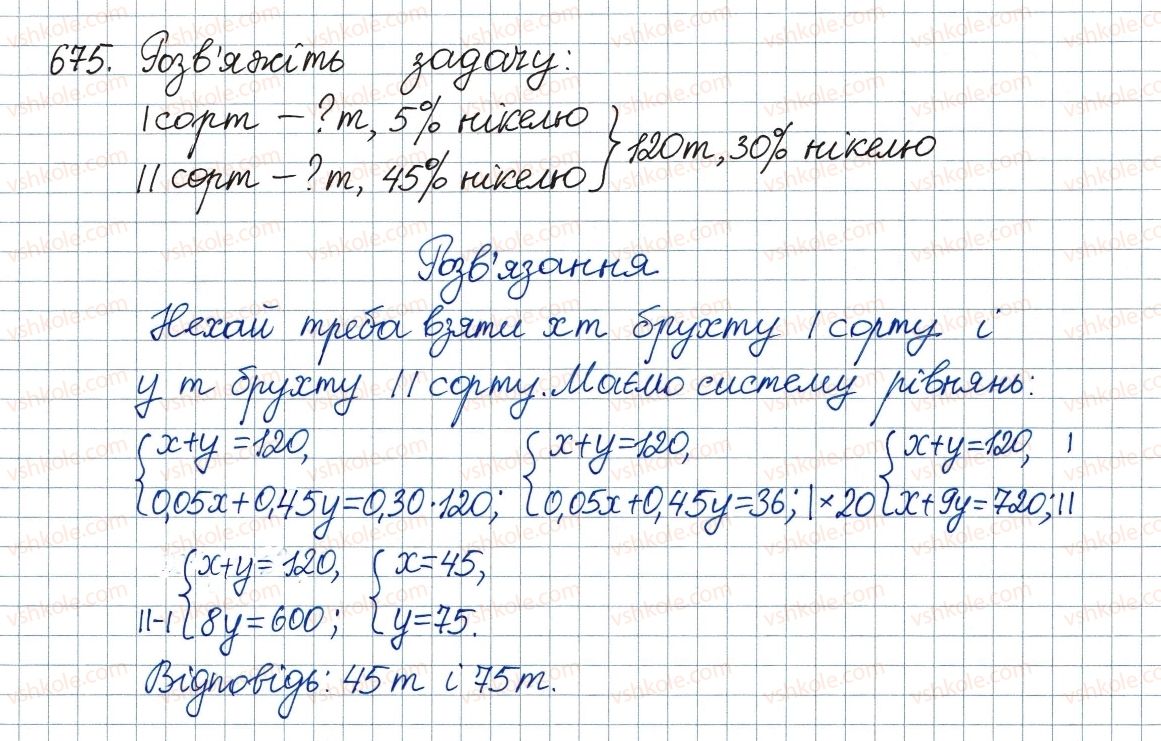 675. Розв'яжіть задачу:
I сорт – ? т, 5% нікелю
II сорт – ? т, 45% нікелю } 120 т, 30% нікелю
Розв'язання
Нехай треба взяти x т брухту I сорту і
y т брухту II сорту. Маємо систему рівнянь:
{ x+y=120, { x+y=120, { x+y=120, I
0,05x+0,45y=0,30·120; 0,05x+0,45y=36; |×20 x+9y=720; II
{ x+y=120, { x=45,
II-I 8y=600; y=75.
Відповідь: 45 т і 75 т.
vshkole.com